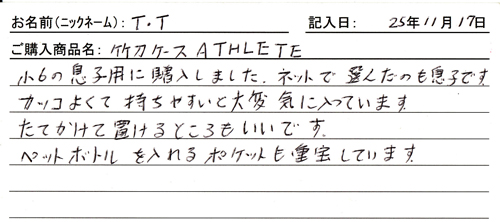 お名前(ニックネーム): T.T 記入日: 25年11月17日
ご購入商品名: 竹刀ケースATHLETE
小6の息子用に購入しました。ネットで選んだのも息子です
カッコよくて持ちやすいと大変気に入っています
たてかけて置けるところもいいです。
ペットボトルを入れるポケットも重宝しています